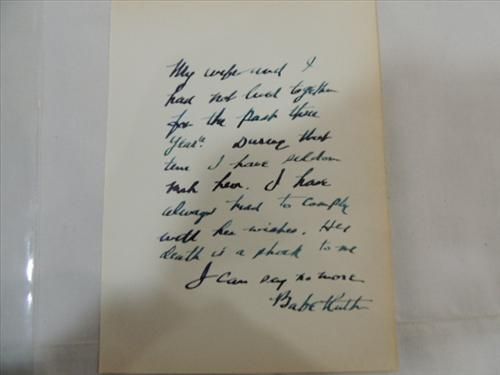 My wife and I
had not lived together
for the past three
years. During that
time I have seldom
met her. I have
always tried to comply
with her wishes. Her
death is a shock to me
I can say no more
Babe Ruth